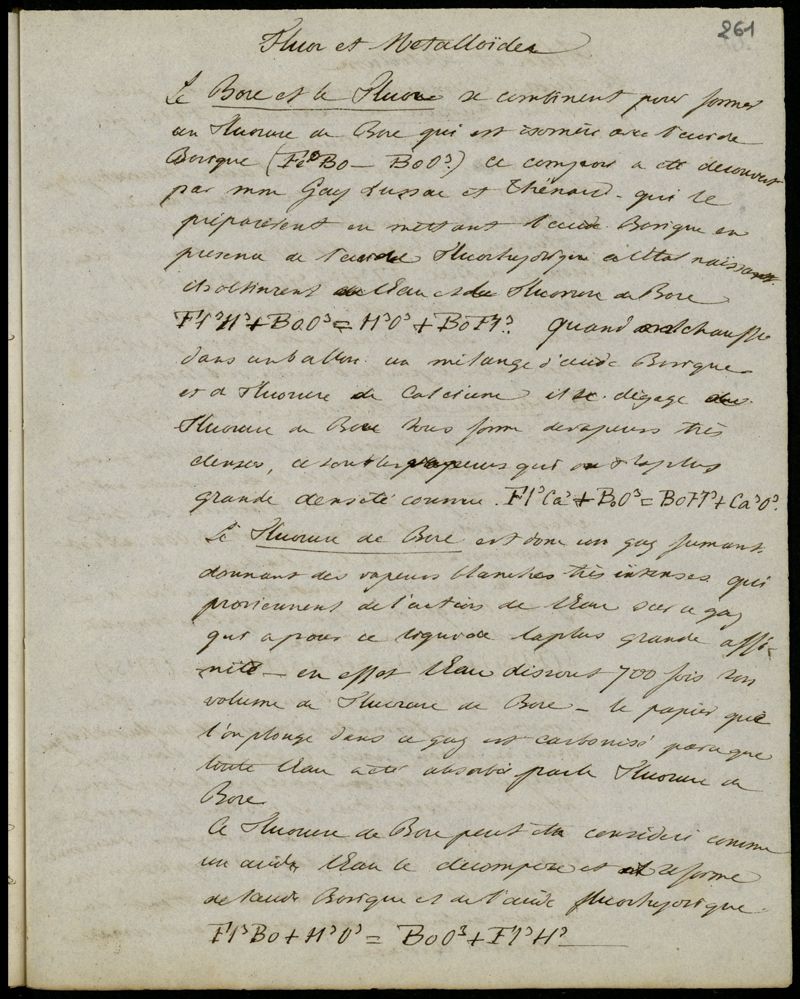 261
Fluor et Metalloïdes
Le Bore et le Fluore se combinent pour former
un Fluorure de Bore qui est isomère avec l'acide
Borique (Fl³Bo — BoO³.) ce composé a été découvert
par mm Gay Lussac et Thénard - qui le
préparèrent en mettant l'acide Borique en
presence de l'acide Fluorhydrique à l'état naissant.
ils obtinrent de l'Eau et du Fluorure de Bore
Fl³H³ + BoO³ = H³O³ + BoFl³. quand on chauffe
dans un ballon un mélange d'acide Borique
et de Fluorure de Calcium il se dégage du
Fluorure de Bore sous forme de vapeurs très
denses, ce sont les vapeurs qui ont la plus
grande densité connue. Fl³Ca³ + BoO³ = BoFl³ + Ca³O³.
Le Fluorure de Bore est donc un gaz fumant
donnant des vapeurs blanches très intenses qui
proviennent de l'action de l'Eau sur ce gaz
qui a pour ce liquide la plus grande affi-
nité — en effet l'Eau dissout 700 fois son
volume de Fluorure de Bore — le papier que
l'on plonge dans ce gaz est carbonisé parce que
toute l'Eau a été absorbée par le Fluorure de
Bore
Ce Fluorure de Bore peut être considéré comme
un acide l'Eau le décompose et il se forme
de l'acide Borique et de l'acide fluorhydrique.
Fl³Bo + H³O³ = BoO³ + Fl³H³